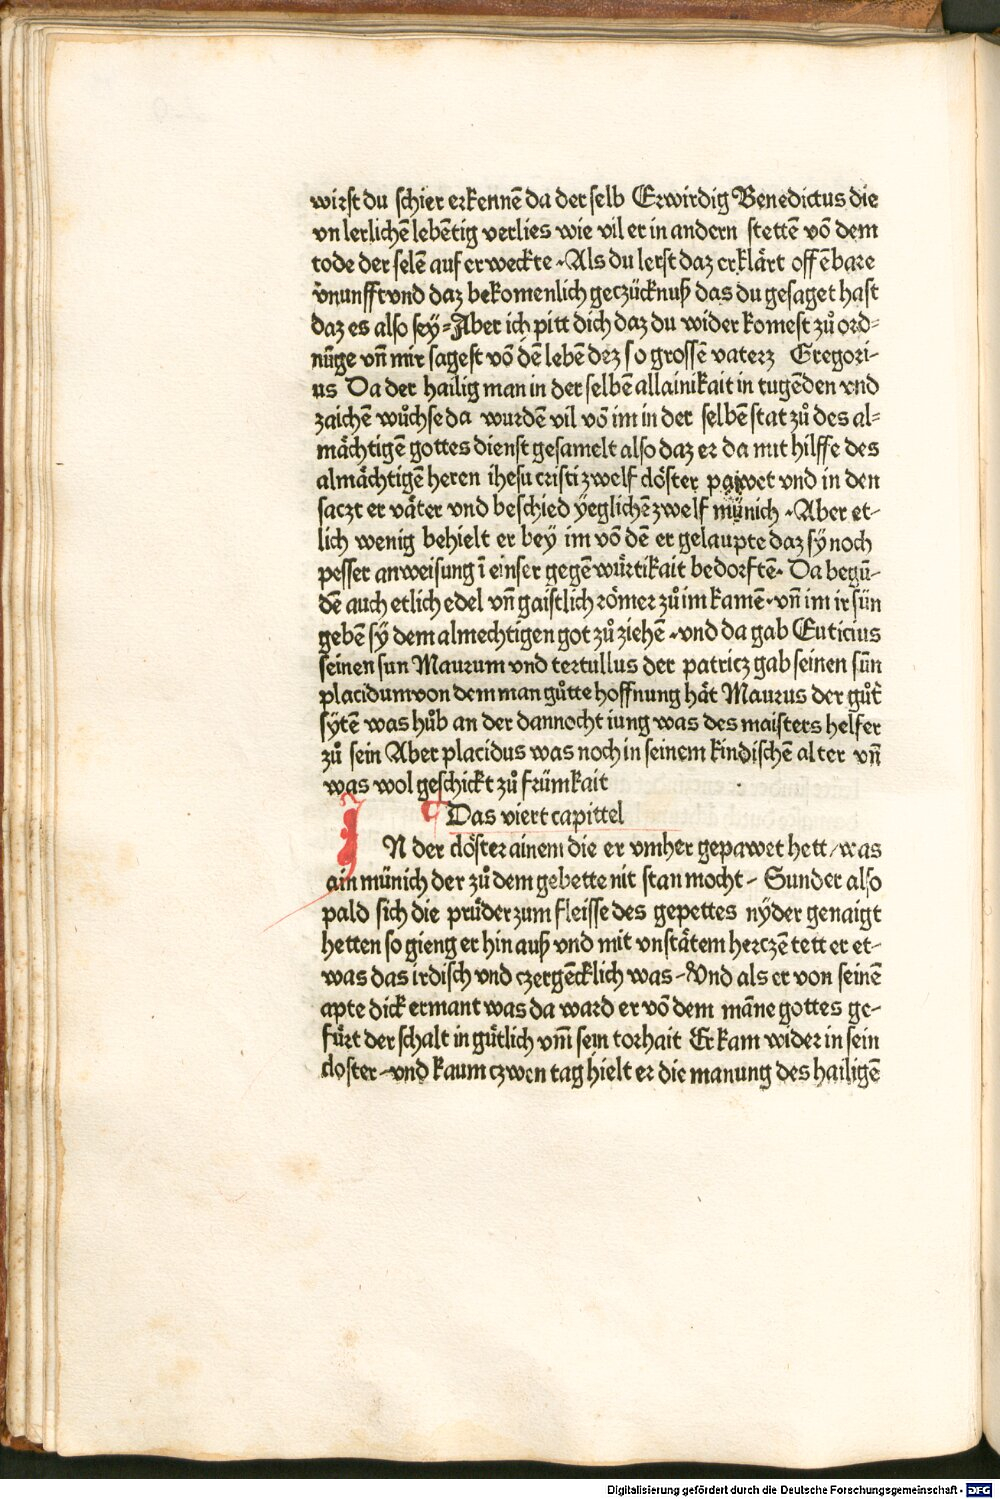 wirst du schier erkennē da der selb Erwirdig Benedictus die
vn lerlichē lebētig verlies wie vil er in andern stettē vō dem
tode der selē auf er weckte Als du lerst daz erklärt offēbare
vnunfft vnd daz bekomenlich geczücknuß das du gesaget hast
daz es also sey Aber ich pitt dich daz du wider komest zů ord-
nūge vn̄ mir sagest vō dē lebē dez so grossē vaterz Gregori-
us Da der hailig man in der selbē allainikait in tugēden vnd
zaichē wůchse da wurdē vil vō im in der selbē stat zů des al-
mächtigē gottes dienst gesamelt also daz er da mit hilffe des
almächtigē heren ihesu cristi zwelf clöster pawet vnd in den
saczt er väter vnd beschied ÿeglichē zwelf münich Aber et-
lich wenig behielt er bey im vō dē er gelaupte daz sÿ noch
pesser anweisung ī einser gegē würtikait bedorftē Da begū-
dē auch etlich edel vn̄ gaistlich römer zů im kamē vn̄ im ir sün
gebē sÿ dem almechtigen got zů ziehē vnd da gab Euticius
seinen sun Maurum vnd tertullus der patricz gab seinen sūn
placidum von dem man gůtte hoffnung hät Maurus der gůt̄
sÿtē was hůb an der dannocht iung was des maisters helfer
zů sein Aber placidus was noch in seinem kindischē alter vn̄
was wol geschickt zů frümkait
Das viert capittel
IN der clöster ainem die er vmher gepawet hett / was
ain münich der zů dem gebette nit stan mocht Sunder also
pald sich die prüder zum fleisse des gepettes nÿder genaigt
hetten so gieng er hin auß vnd mit vnstätem herczē tett er et-
was das irdisch vnd czergēcklich was Vnd als er von seinē
apte dick ermant was da ward er vō dem māne gottes ge-
fürt der schalt in gütlich vm̄ sein torhait Er kam wider in sein
closter vnd kaum czwen tag hielt er die manung des hailigē
Digitalisierung gefördert durch die Deutsche Forschungsgemeinschaft - DFG